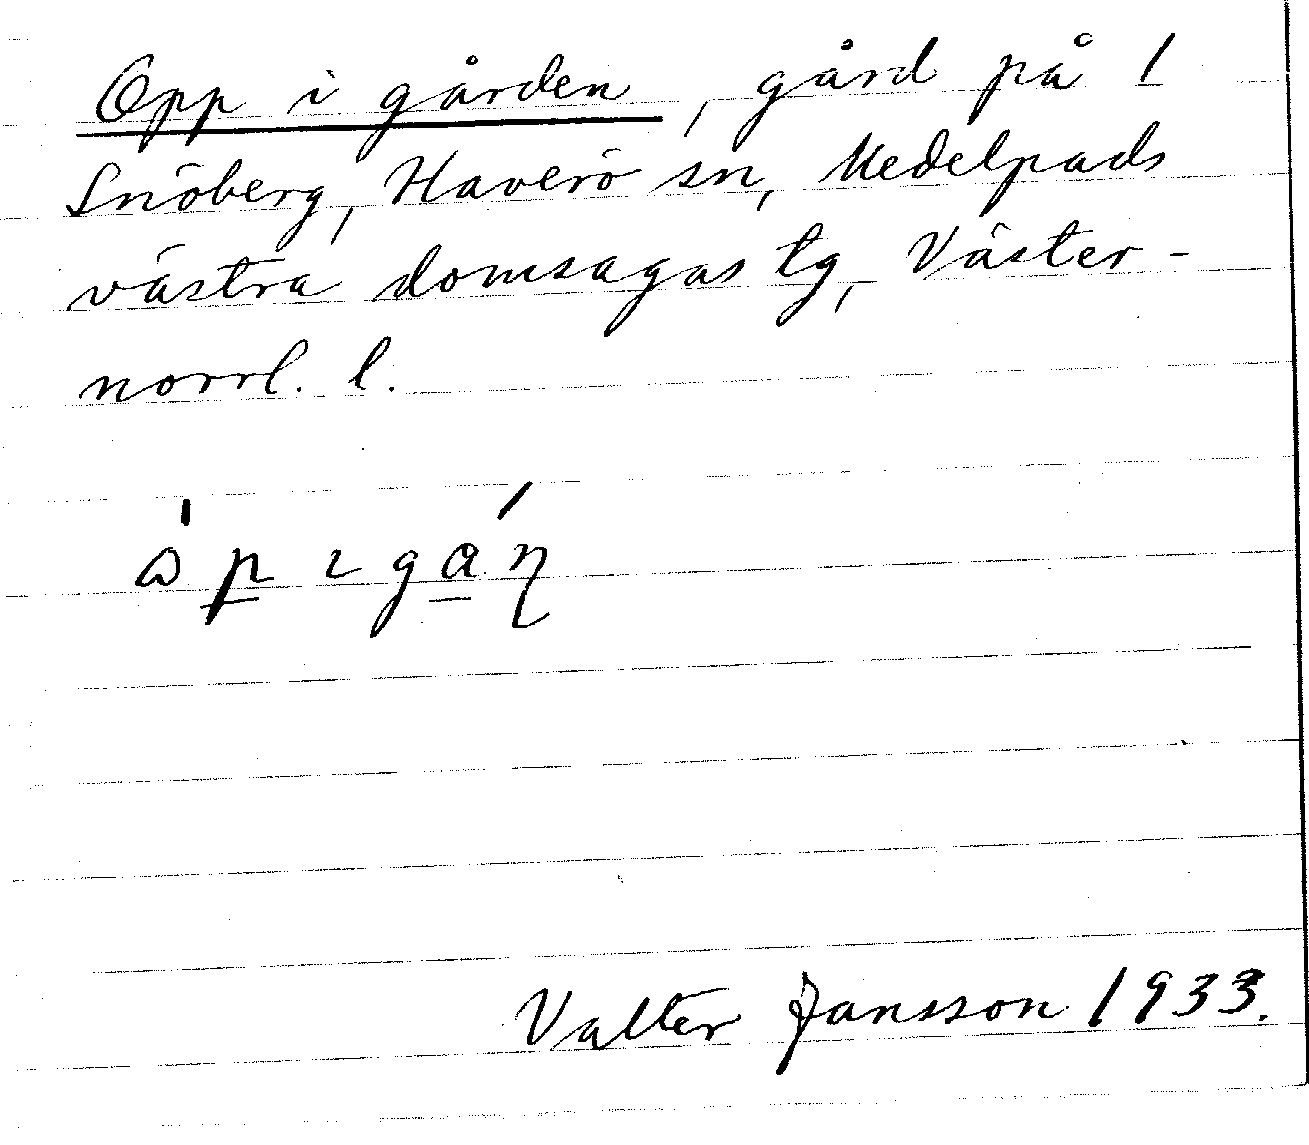 Opp i gården, gård på 1
Snöberg, Haverö sn, Medelpads
västra domsagas tg, Väster-
norrl. l.
Valter Jansson 1933.